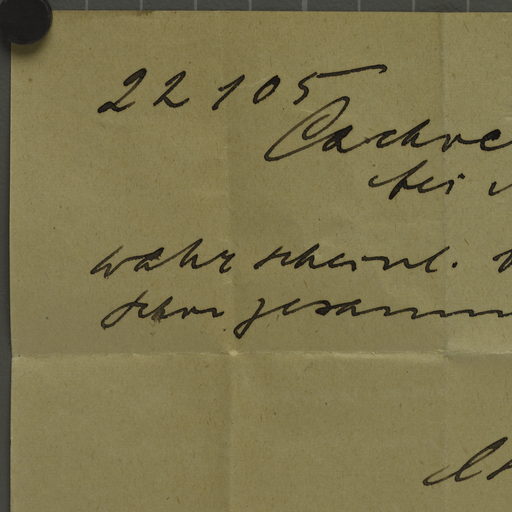 22105
Cachre
bei
wahrscheinl.
schon gesamm